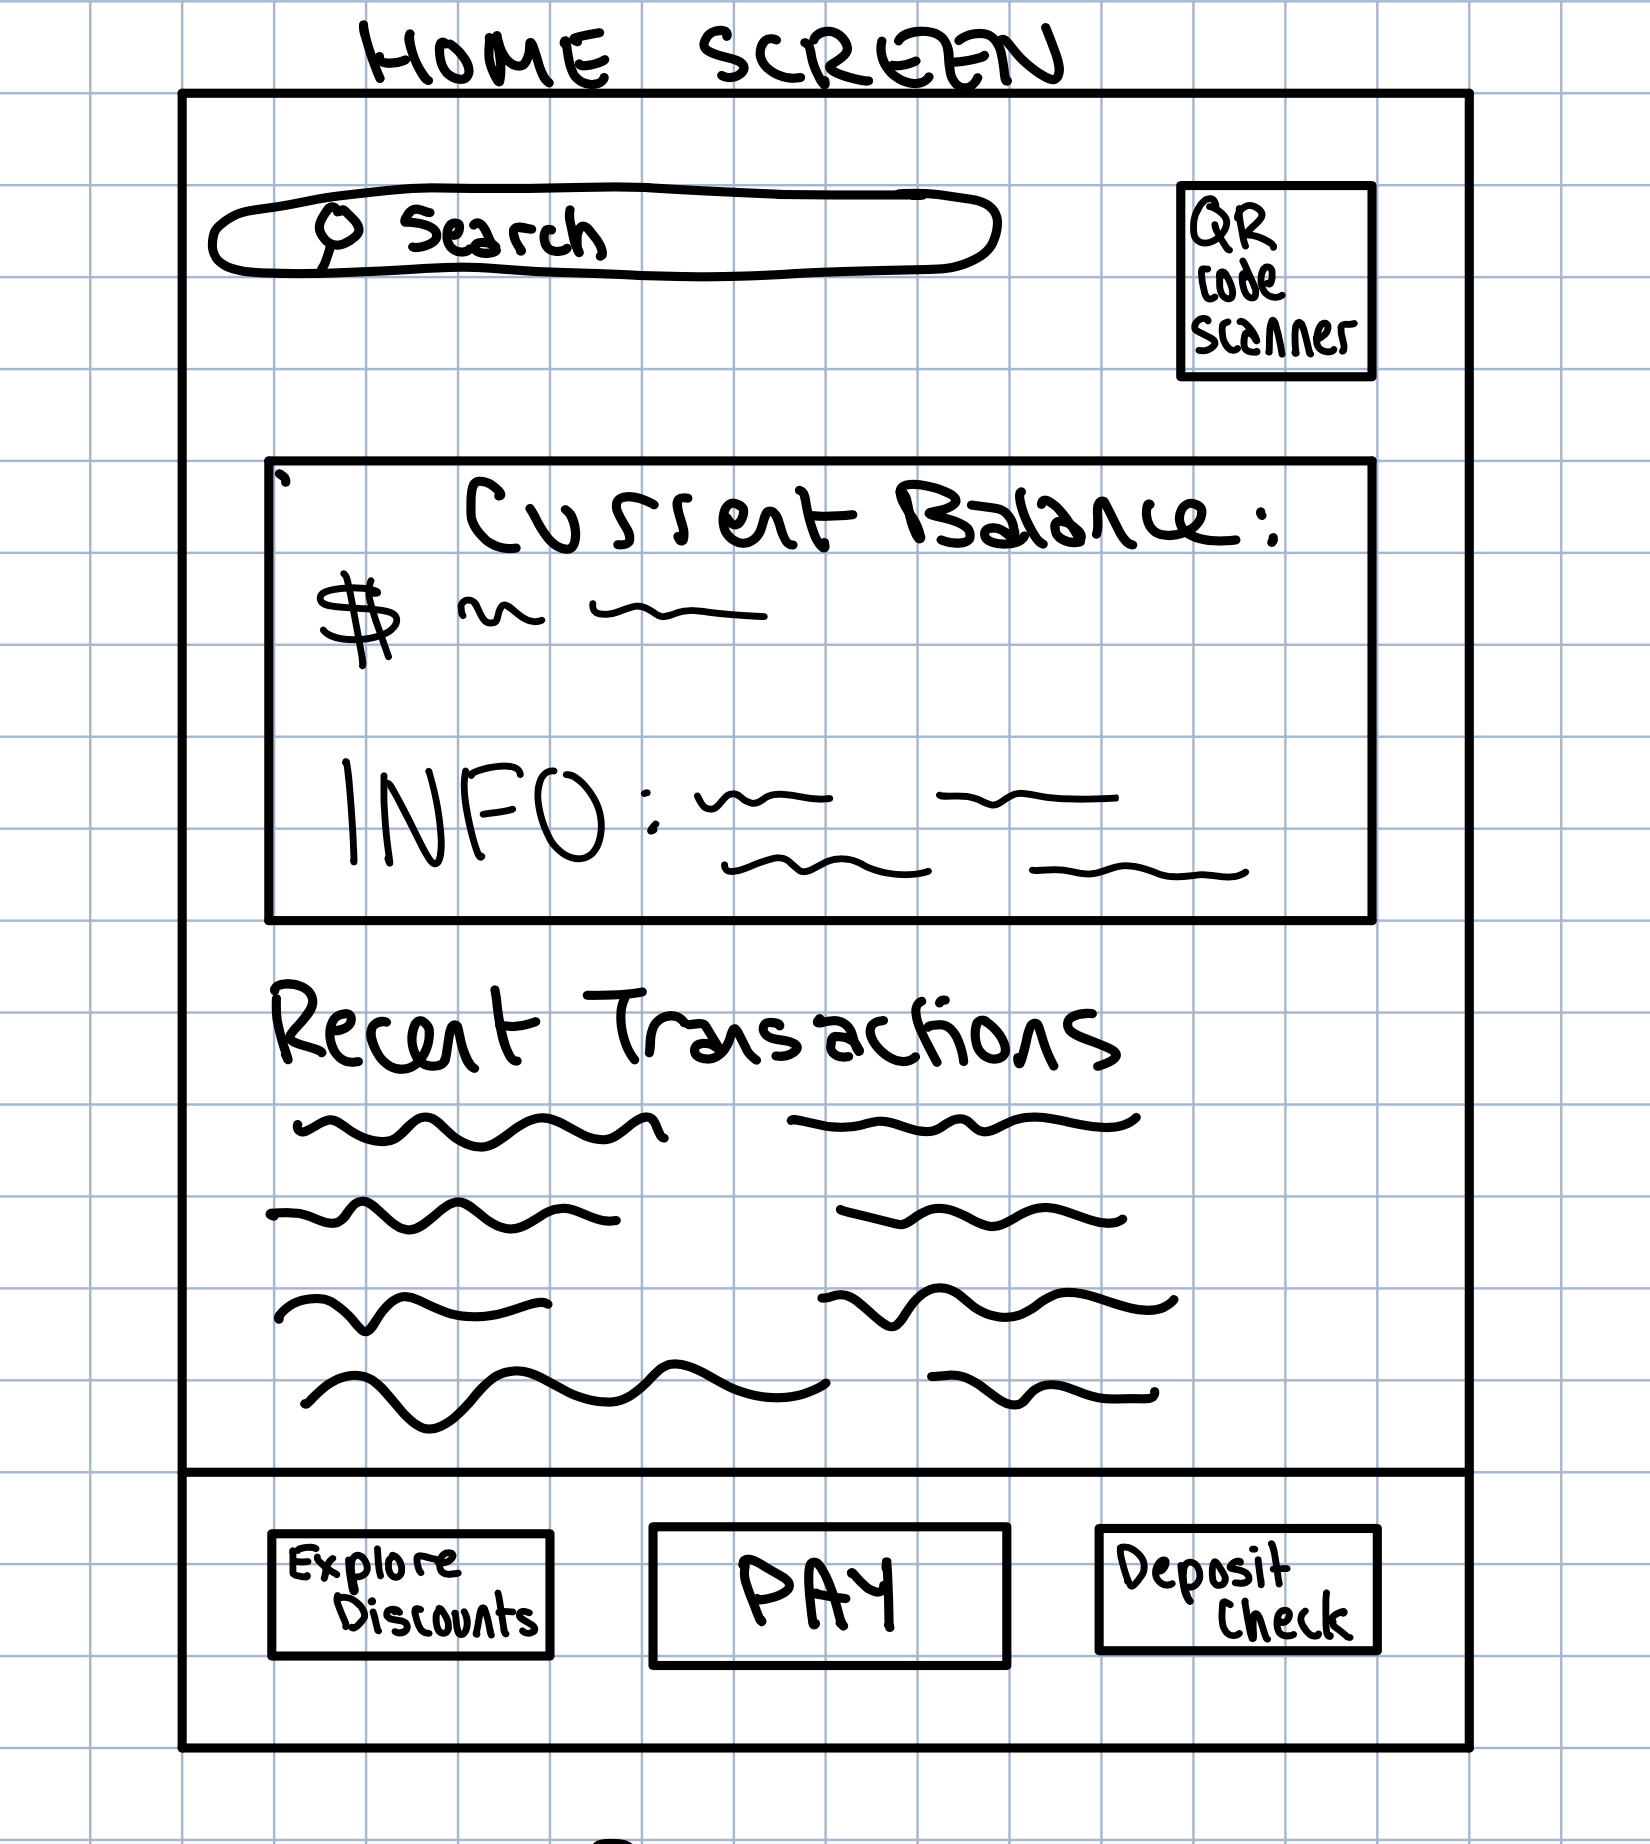 HOME SCREEN
Search
QR
code
scanner
Current Balance:
$
INFO:
Recent Transactions
Explore
Discounts
PAY
Deposit
Check